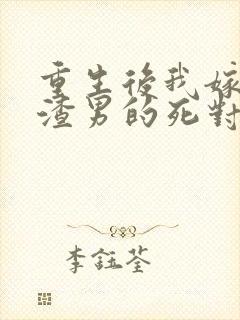 重生後我嫁
渣男的死對
李鈺荃